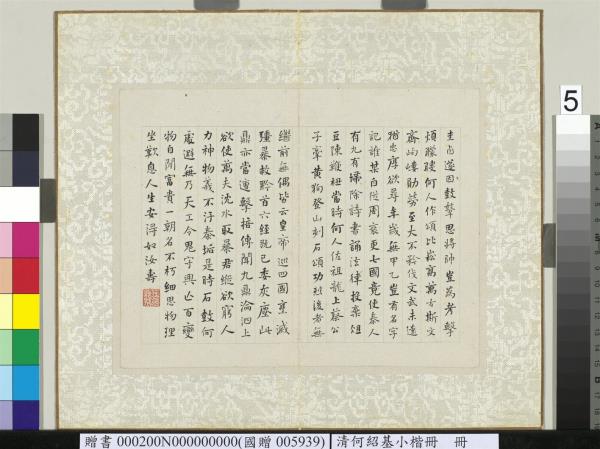 圭卣遂因鼓鼙思將帥豈為考擊
煩矇瞍何人作頌比崧高萬古斯文
齊岣嶁勛勞至大不矜伐文武未遠
猶忠厚欲尋年歲無甲乙豈有名字
記誰某自從周衰更七國竟使秦人
有九有掃除詩書誦法律投棄俎
豆陳鞭杻當時何人佐祖龍上蔡公
子牽黃狗登山刻石頌功烈後者無
繼前無偶皆云皇帝巡四國烹滅
彊暴救黔首六經既已委灰塵此
鼓亦當遭擊掊傳聞九鼎淪泗上
欲使萬夫沈水取暴君縱欲窮人
力神物義不汙秦垢是時石鼓何
處避無乃天工令鬼守興亡百變
物自閒富貴一朝名不朽細思物理
坐歎息人生安得如汝壽
5
贈書 000200N000000000(國贈 005939) 清何紹基小楷冊 冊